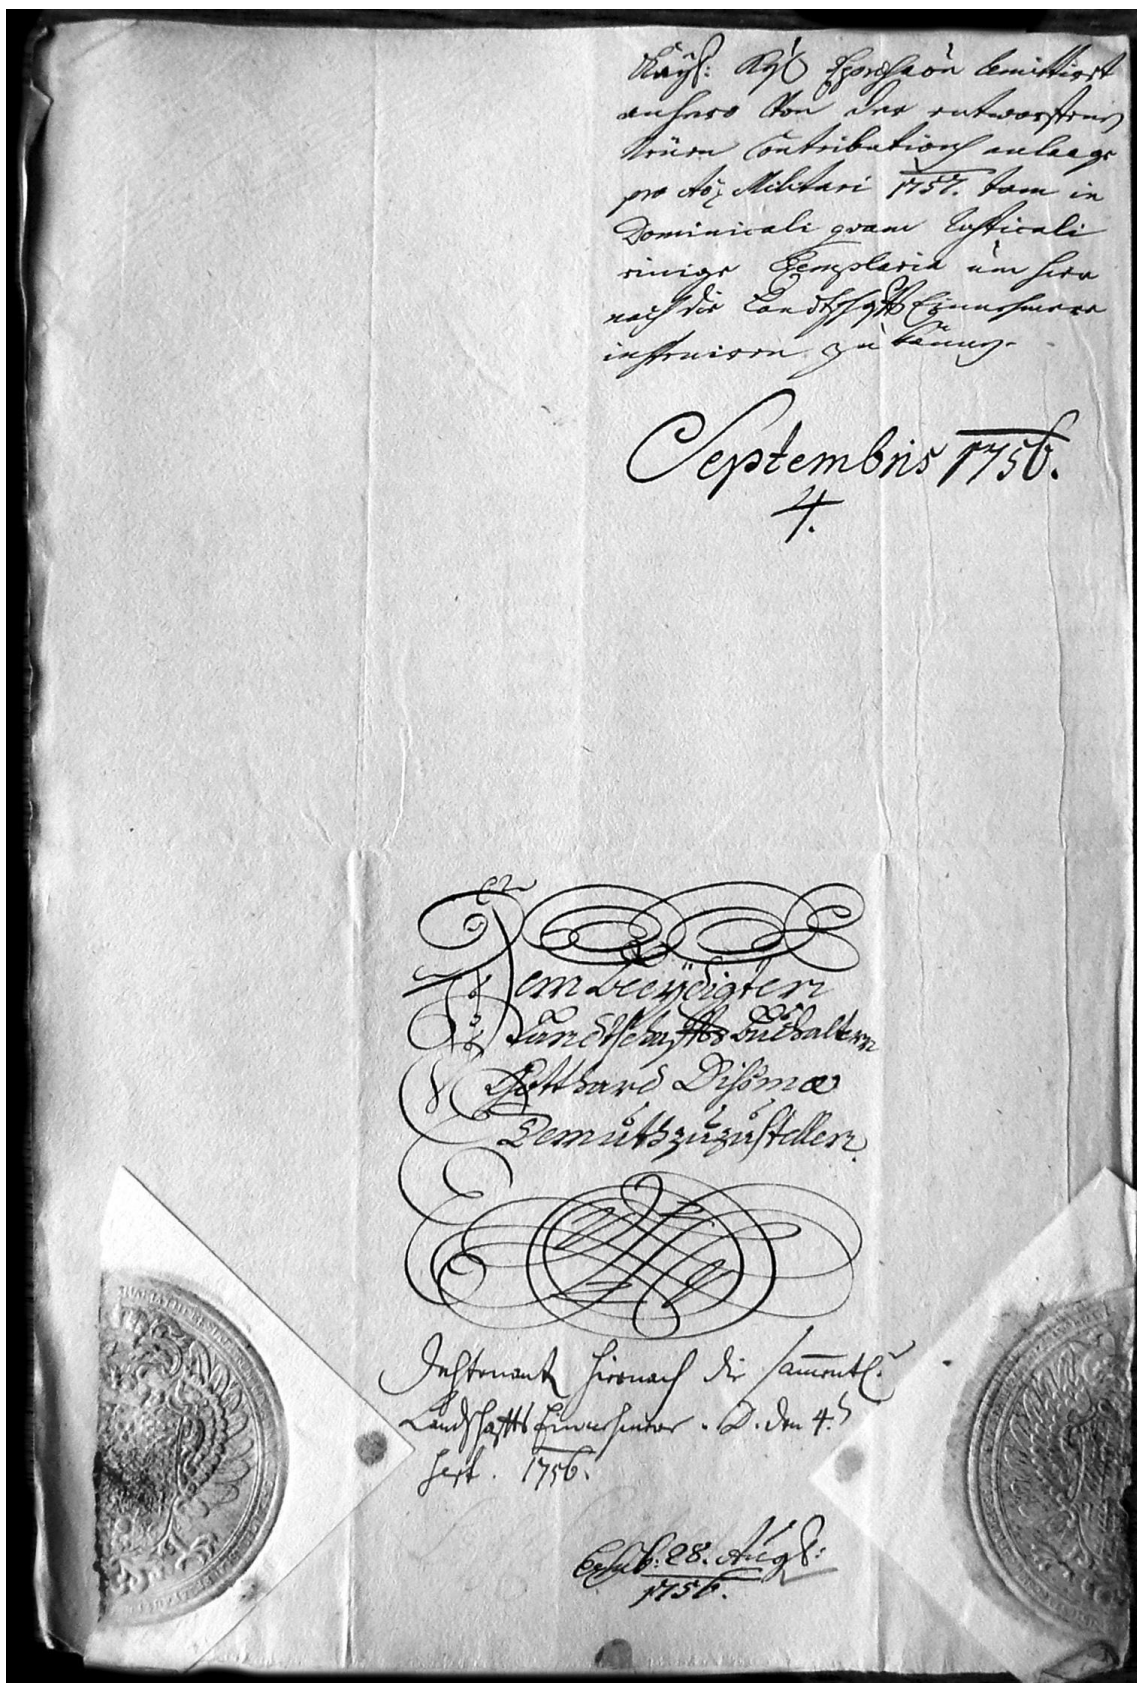 Kayß: Kgl remittiert
anhero Von der entworffenen
Neüen Contributions anlaage
pro Aõ Militari 1757. tam in
Dominicali quam Rusticali
einige Exemplaria um hier
nach die Landtschaffts Einnehmere
instruiren zu können.
Septembris 1756.
4.
Dem Beeÿdigten
Landschaffts Buchaltern
Gotthard Dismæ
Demuth zuzustellen.
hiernach die sammentl:
Landschaffts Einnehmer. D. den 4.
1756.
28. Aug:
1756.